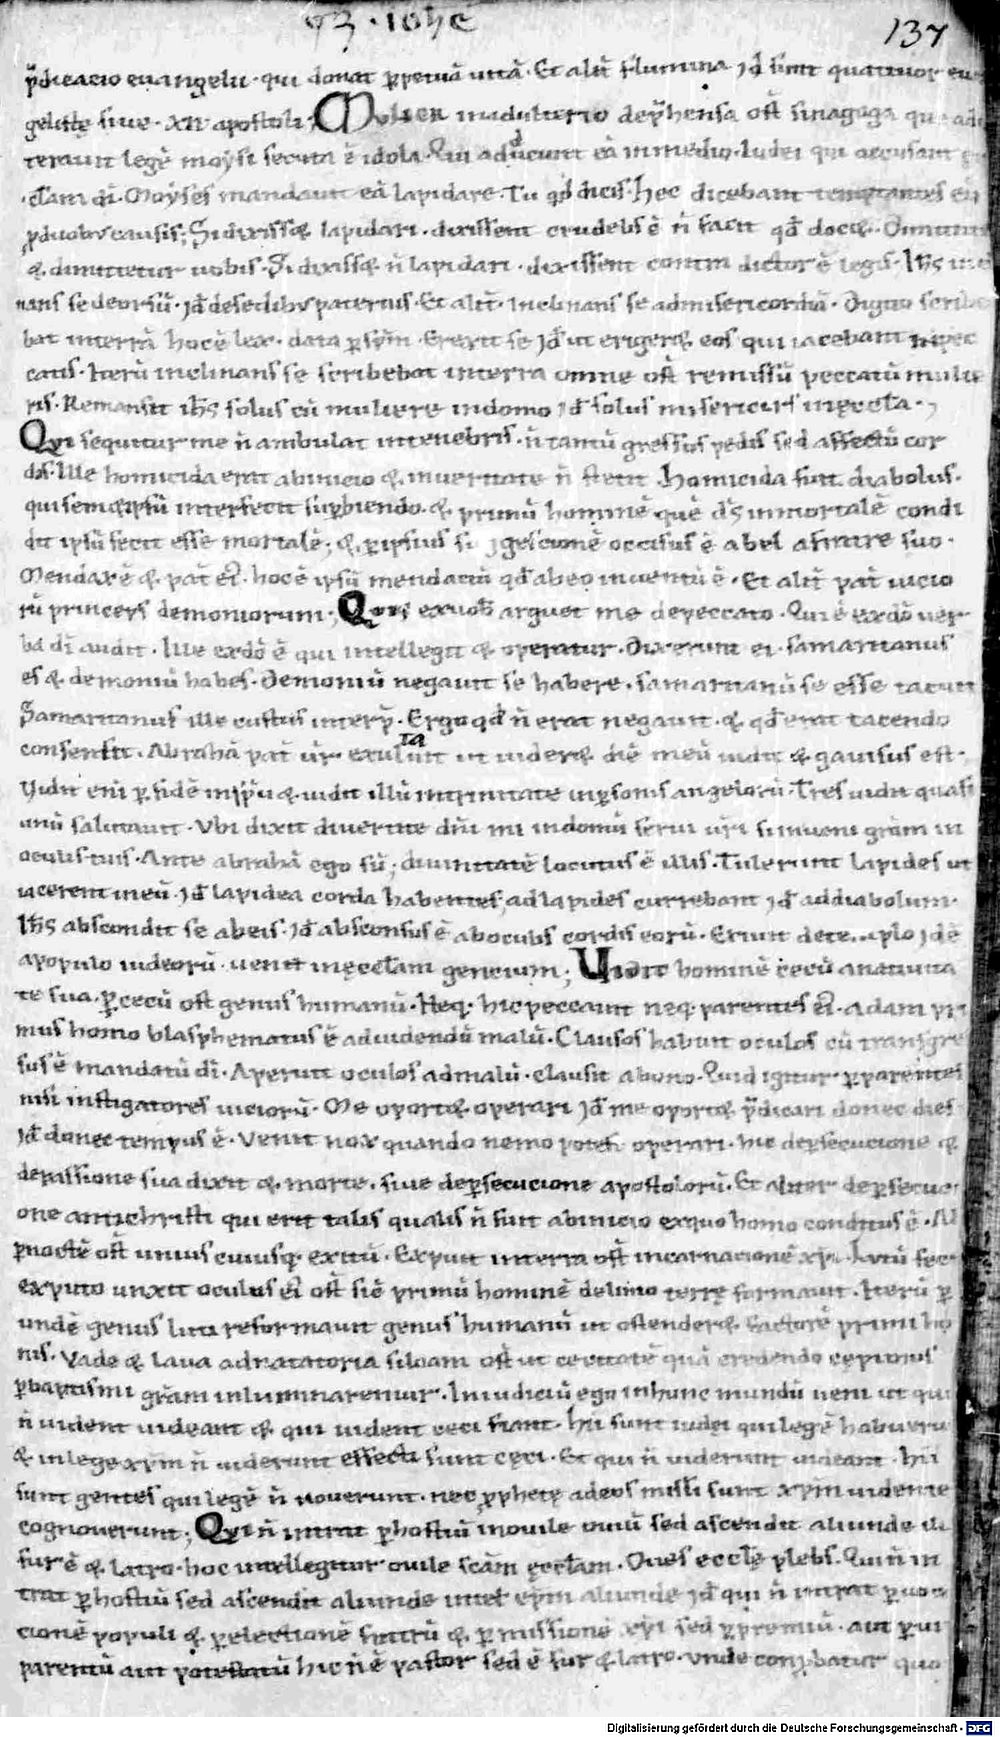 137
p̄dicacio euangelii · qui donat ꝑpetuā uitā · Et alit̄ flumina id sunt quattuor eu
geliste siue · xii apostoli ; Mulier in adulterio dep̄hensa ost̄ sinagoga que
terauit legē moysi secuta ē idola · Qui adducunt eā in medio · Iudei qui accusant
cl̄am di · Moyses mandauit eā lapidare · Tu qd̄ dicis · Hec dicebant temptantes eū
ꝓ duobus causis ; Si dixisset lapidari · dixissent crudelis ē n̄ facit qd̄ docet · Dimittite
& dimittetur uobis · Si dixisset n̄ lapidari · dixissent contra dictor ē legis · Ih̄s
nans se deorsū · id de sedibus paternis · Et alit̄ · Inclinans se ad misericordiā · Digito scribe
bat in terrā hoc ē lex · data ꝑ · Erexit se id ut erigeret eos qui iacebant in pec
catis · Iterū inclinans se scribebat in terra omne ost̄ remissū peccatū mulie
ris · Remansit ih̄s solus cū muliere in domo id solus misericors in ęccl̄a ·
Qui sequitur me n̄ ambulat in tenebris · n̄ tantū gressus pedis sed affectū cor
dis · Ille homicida erat ab inicio & in ueritate n̄ stetit · Homicida fuit diabolus ·
qui semetipsū interfecit suꝑbiendo · & primū hominē quē d̄s inmortalē condi
dit ipsū fecit esse mortalē ; & ꝑ ipsius occisus ē abel a fratre suo ·
Mendax ē & pat̄ ei · hoc ē ipsū mendaciū qd̄ ab eo inuentū ē · Et alit̄ pat̄ uicio
rū princeps demoniorum ; Quis ex uob̄ arguet me de peccato · Qui ē ex dō uer
ba di audit · Ille ex dō ē qui intellegit & operatur · Dixerunt ei · samaritanus
es & demoniū habes · Demoniū negauit se habere · samaritanū se esse tacuit
Samaritanus ille custus interp̄ · Ergo qd̄ n̄ erat negauit · & qd̄ erat tacendo
consensit · Abrahā pat̄ ur̄ exultauit ut uideret diē meū uidit & gauisus est ·
Vidit eni ꝑ fidē in sp̄u & uidit illū in trinitate in ꝑsonis angelorū · Tres uidit quasi
unū salutauit · Vbi dixit diuertite dn̄i mi in domū serui ur̄i si inueni grām in
oculis tuis · Ante abrahā ego sū ; diuinitatē locutus ē illis · Tulerunt lapides ut
iacerent in eū · id lapidea corda habentes ; ad lapides currebant id ad diabolum ·
Ih̄s abscondit se ab eis · id absconsus ē ab oculis cordis eorū · Exiuit de templo id ē
a populo iudeorū · uenit in ęccl̄am gencium ; Vidit hominē cecū a natiuita
te sua · ꝑ cecū ost̄ genus humanū · Neq · hic peccauit neq · parentes ei · adam pri
mus homo blasphematus ē ad uidendū malū · Clausos habuit oculos cū transgre
sus ē mandatū di · Aperuit oculos ad malū · clausit a bono · Quid igitur ꝑ parentes
nisi instigatores uiciorū · Me oportet operari id me oportet p̄dicari donec dies
id donec tempus ē · Venit nox quando nemo potest operari · hic de ꝑsecucione &
de passione sua dixit & morte · siue de ꝑsecucione apostolorū · Et aliter de ꝑsecuci
one antichristi qui erit talis qualis n̄ fuit ab inicio ex quo homo conditus ē ·
ꝑ noctē ost̄ unius cuiusq · exitū · Expuit in terra ost̄ incarnacionē xp̄i · Lutū fec
ex puto unxit oculus ei ost̄ sic primū hominē de limo terrę formauit · Iterū ꝑ
undē genus luti reformauit genus humanū ut ostenderet factorē primi ho
nis · Vade & laua ad natatoria siloam ost̄ ut cecitatē quā credendo
ꝑ baptismi grām inluminaremur · In iudiciū ego in hunc mundū ueni ut qui
n̄ uident uideant & qui uident ceci fiant · Hii sunt iudei qui legē habueru
& in lege xp̄m n̄ uiderunt effecti sunt cęci · Et qui n̄ uiderunt uideant · hii
sunt gentes qui legē n̄ nouerunt · nec ꝓphetę ad eos missi sunt xp̄m uidente
cognouerunt ; Qui n̄ intrat ꝑ hostiū in ouile ouiū sed ascendit aliunde ille
fur ē & latro · hoc intellegitur ouile scām ęccl̄am · Oues eccl̄ę plebs · Qui n̄ in
trat ꝑ hostiū sed ascendit aliunde aliunde id qui n̄ intrat ꝑ uoca
cionē populi & ꝑ electionē fratrū & ꝑ missionē xp̄i sed ꝑ premiū · aut ꝑ ui
parentū aut potestatū hic n̄ ē pastor sed ē fur & latro · unde conꝓbatur quo
Digitalisierung gefördert durch die Deutsche Forschungsgemeinschaft - DFG